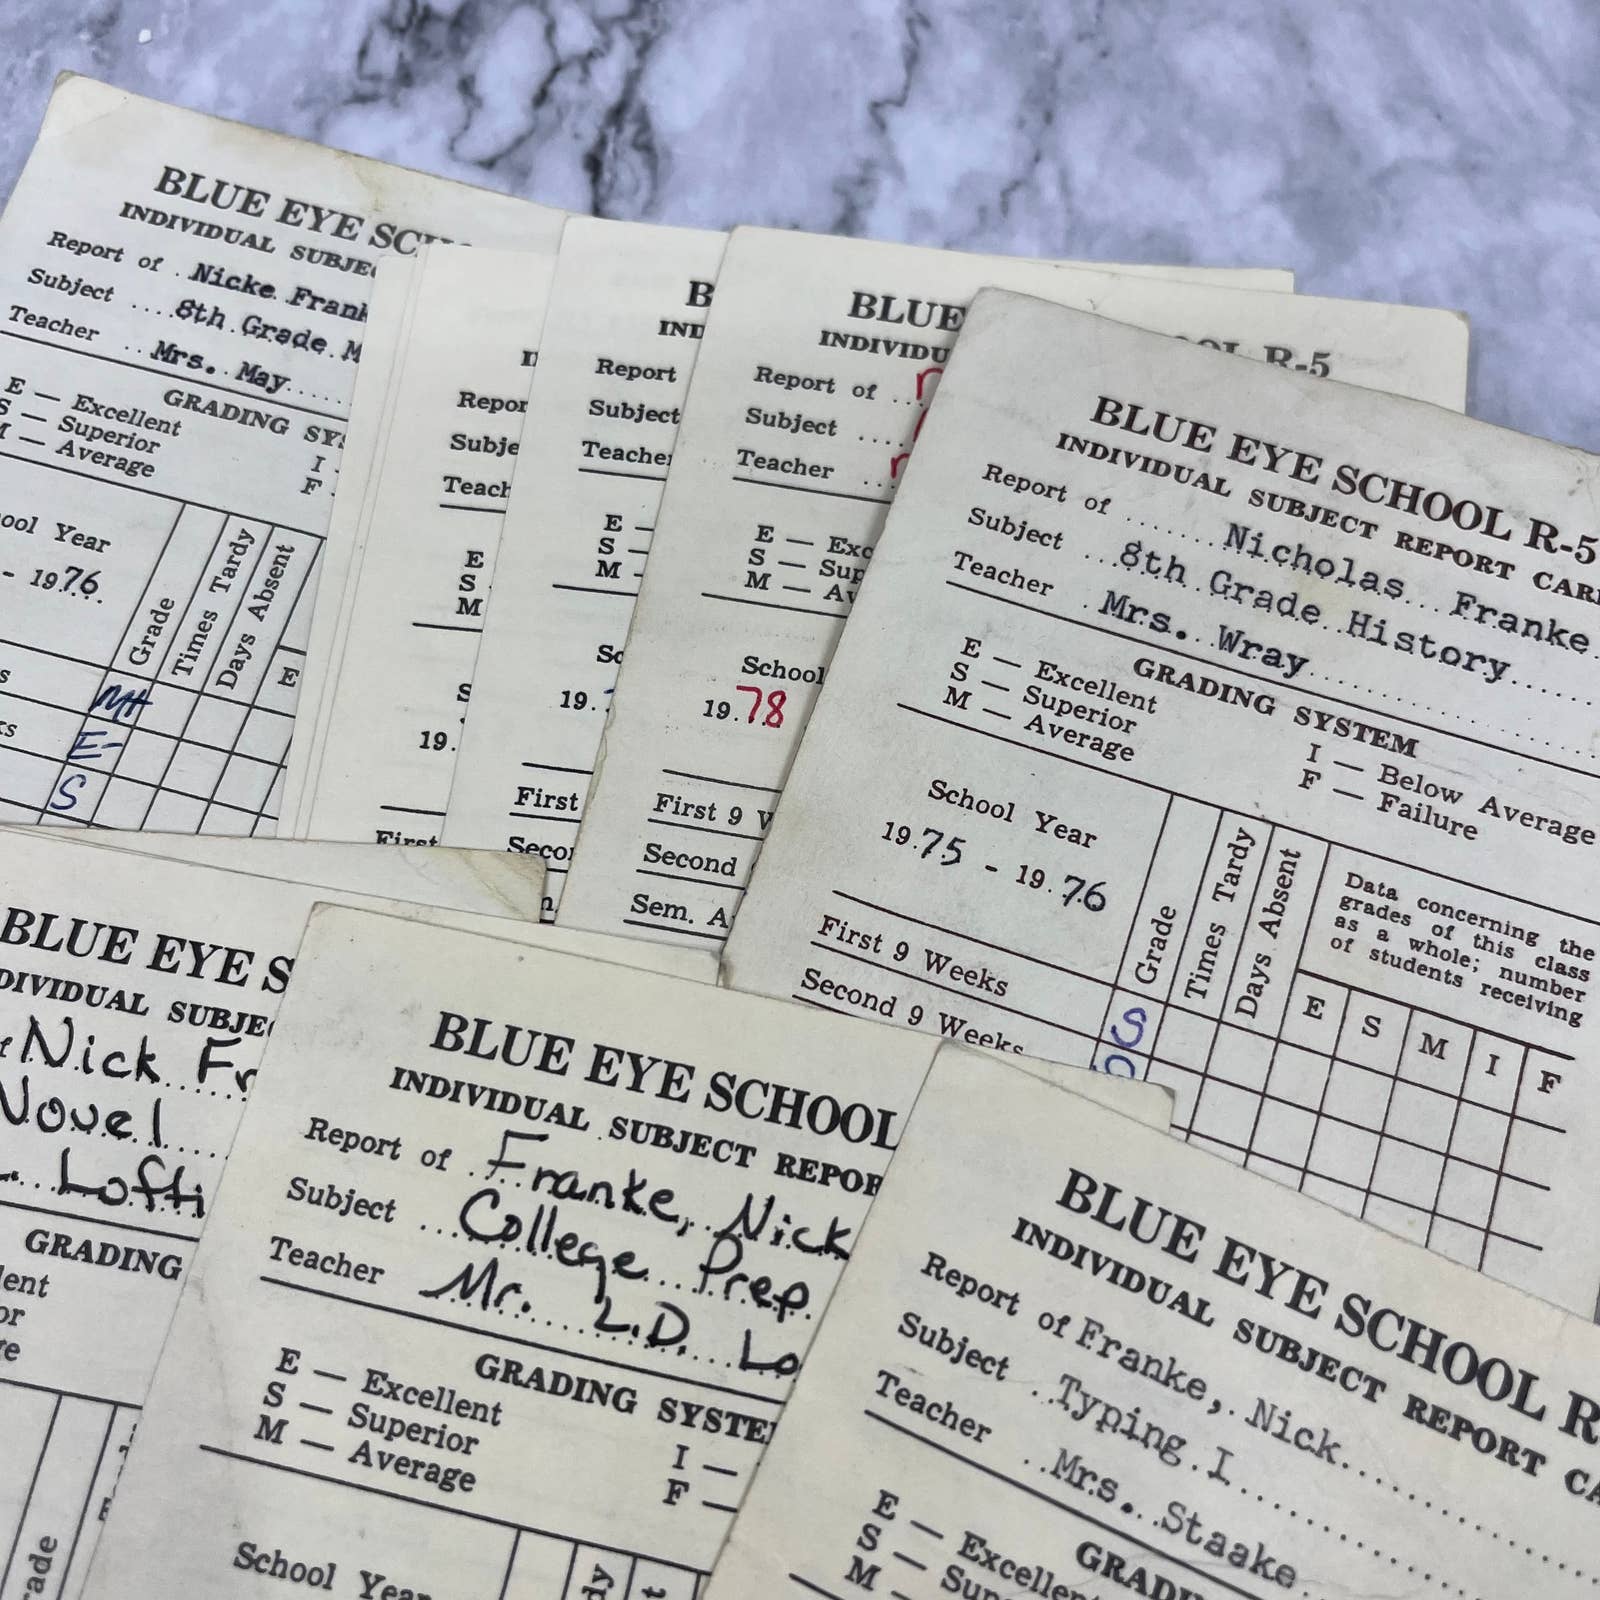 BLUE EYE
INDIVIDUAL
Report of Nicke
Subject 8th Grade
Teacher Mrs. May
GRADING
E — Excellent
S — Superior
— Average
I
F
Year
- 1976.
Grade
Times Tardy
Days Absent
E
E-
S
Report
Subject
Teacher
E —
S —
M -
19.
First
E
S
M
19.
BLUE
Report of
Subject
Teacher
E —
S —
M —
School
19.78
First 9
Second
Sem.
R-5
BLUE EYE SCHOOL R-5
INDIVIDUAL SUBJECT REPORT
Report of Nicholas Franke
Subject 8th Grade History
Teacher Mrs. Wray
GRADING SYSTEM
E — Excellent
S — Superior
M — Average
I — Below Average
F — Failure
School Year
1975 - 1976
Grade
Times Tardy
Days Absent
Data concerning the
grades of this class
as a whole; number
of students receiving
E S M I F
First 9 Weeks
S
Second 9 Weeks
BLUE EYE
Nick
Novel
GRADING
BLUE EYE SCHOOL
INDIVIDUAL SUBJECT
Report of Franke, Nick
Subject College Prep.
Teacher Mr. L.D.
GRADING
E — Excellent
S — Superior
M — Average
I —
F —
School
BLUE EYE SCHOOL
INDIVIDUAL SUBJECT REPORT
Report of Franke, Nick
Subject Typing I
Teacher Mrs. Staake
E —
S —
M —